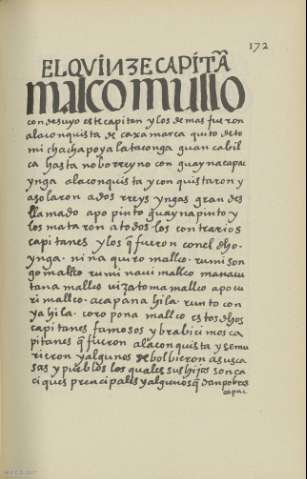 172
EL QVINZE CAPITÃ
malco mullo
condesuyo este capitan y los demas fueron
a la conquista de caxamarca quito de to
mi chachapoya lataconga guancabil
ca hasta nobo rreyno con guaynacapac
ynga a la conquista y conquistaron y
asolaron a dos rreys yngas grandes
llamado apo pinto guaynapinto y
los mataron a todos los contrarios
capitanes y los q̃ fueron con el dho
ynga. nina quiro mallco. rumi son
go mallco rumi naui mallco manacu
tana mallco uizatoma mallco apo cu
ri mallco. acapana hila. runto con
ya hila. coropona mallco estos dhos
capitanes famosos y brabicimos ca
pitanes q̃ fueron a la conquista y se mu
rieron y algunos bolbieron a sus ca
sas y pueblos los quales sus hijos son ca
ciques prencipalles y algunos q̃ dan pobres
capac